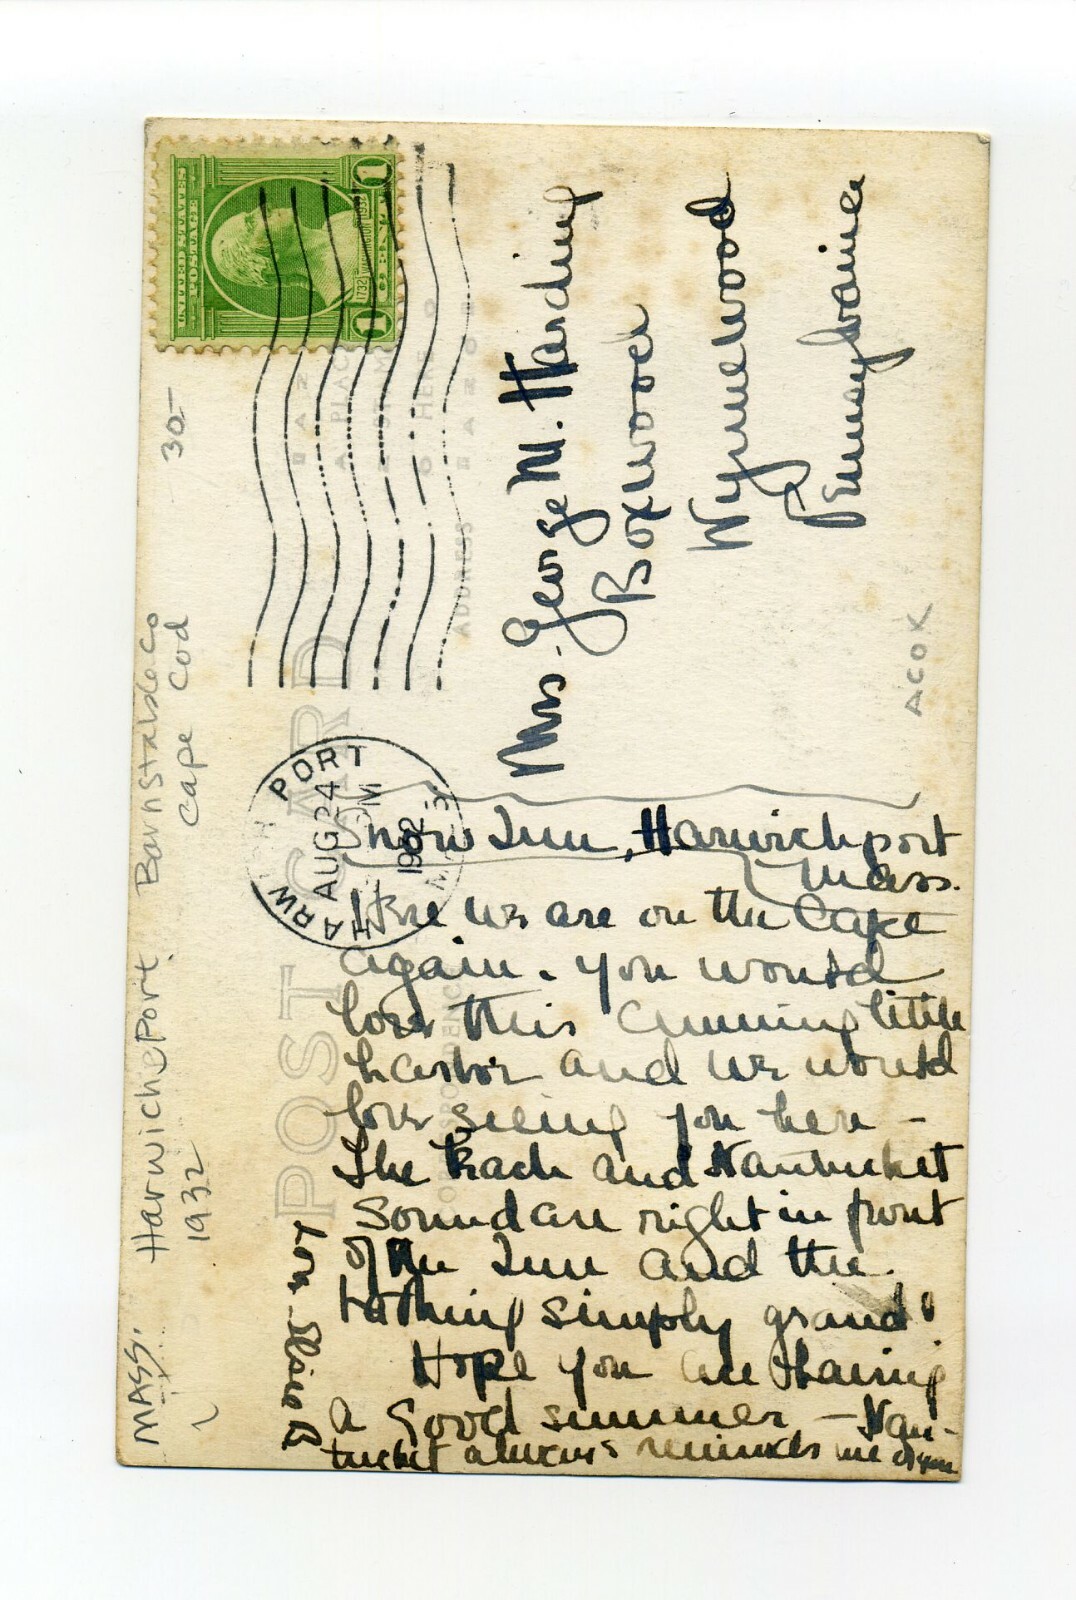 MASS. Harwicheport, Barnstable Co
1932 Cape Cod
30-
UNITED STATES
POSTAGE
1732 WASHINGTON 1932
1 1
PLACE
STAMP
HERE
POST CARD
ADDRESS
CORRESPONDENCE
HARWICH PORT
AUG 24
PM
1932
MASS
AZO
ACOK
Mrs. George M. Harding
Boxwood
Wynnewood
Pennsylvania
Snow Inn, Harwichport
Mass.
Here we are on the Cape
again. You would
love this cunning little
harbor and we would
love seeing you here -
The beach and Nantucket
Sound are right in front
of the Inn and the
bathing simply grand!
Hope you are having
a good summer - Nan-
tucket always reminds me of you
Love